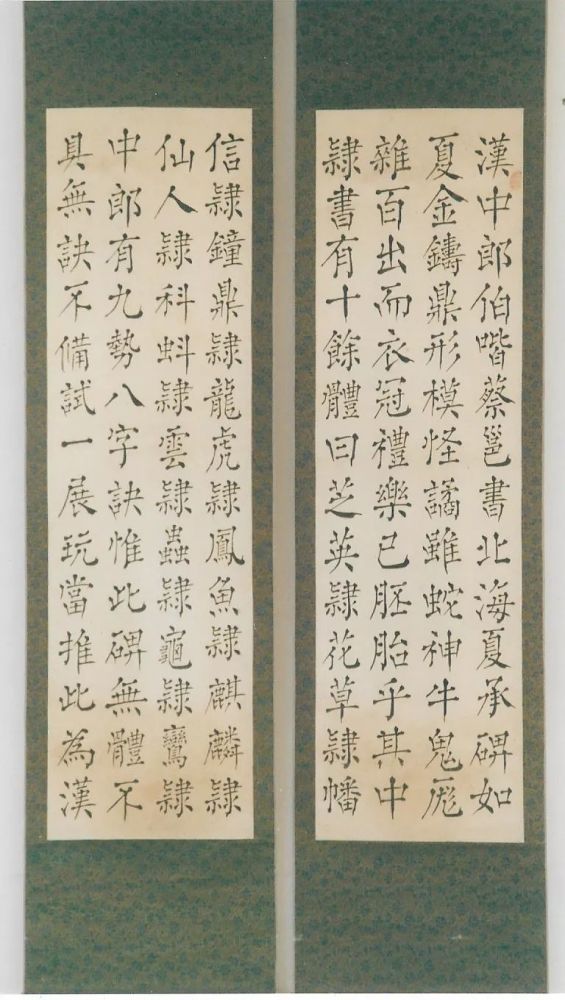 漢中郎伯喈蔡邕書北海夏承碑如
夏金鑄鼎形模怪譎雖蛇神牛鬼厖
雜百出而衣冠禮樂已胚胎乎其中
隷書有十餘體曰芝英隷花草隷幡
信隷鐘鼎隷龍虎隷鳳魚隷麒麟隷
仙人隷科蚪隷雲隷蟲隷龜隷鸞隷
中郎有九勢八字訣惟此碑無體不
具無訣不備試一展玩當推此為漢